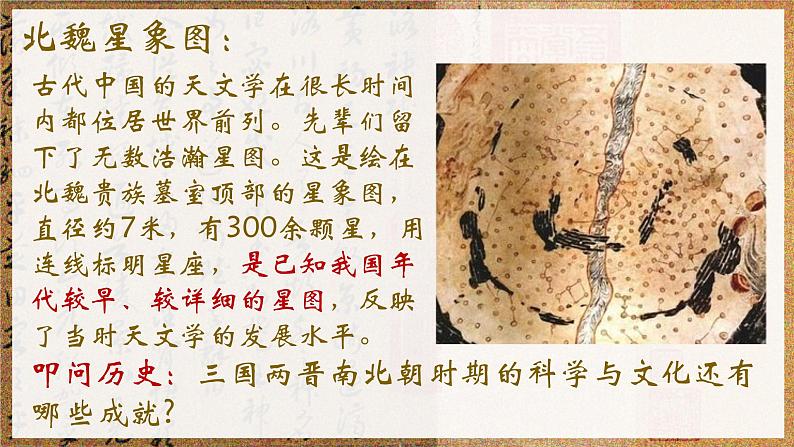 北魏星象图：
古代中国的天文学在很长时间
内都位居世界前列。先辈们留
下了无数浩瀚星图。这是绘在
北魏贵族墓室顶部的星象图，
直径约7米，有300余颗星，用
连线标明星座，是已知我国年
代较早、较详细的星图，反映
了当时天文学的发展水平。
叩问历史：三国两晋南北朝时期的科学与文化还有
哪些成就?